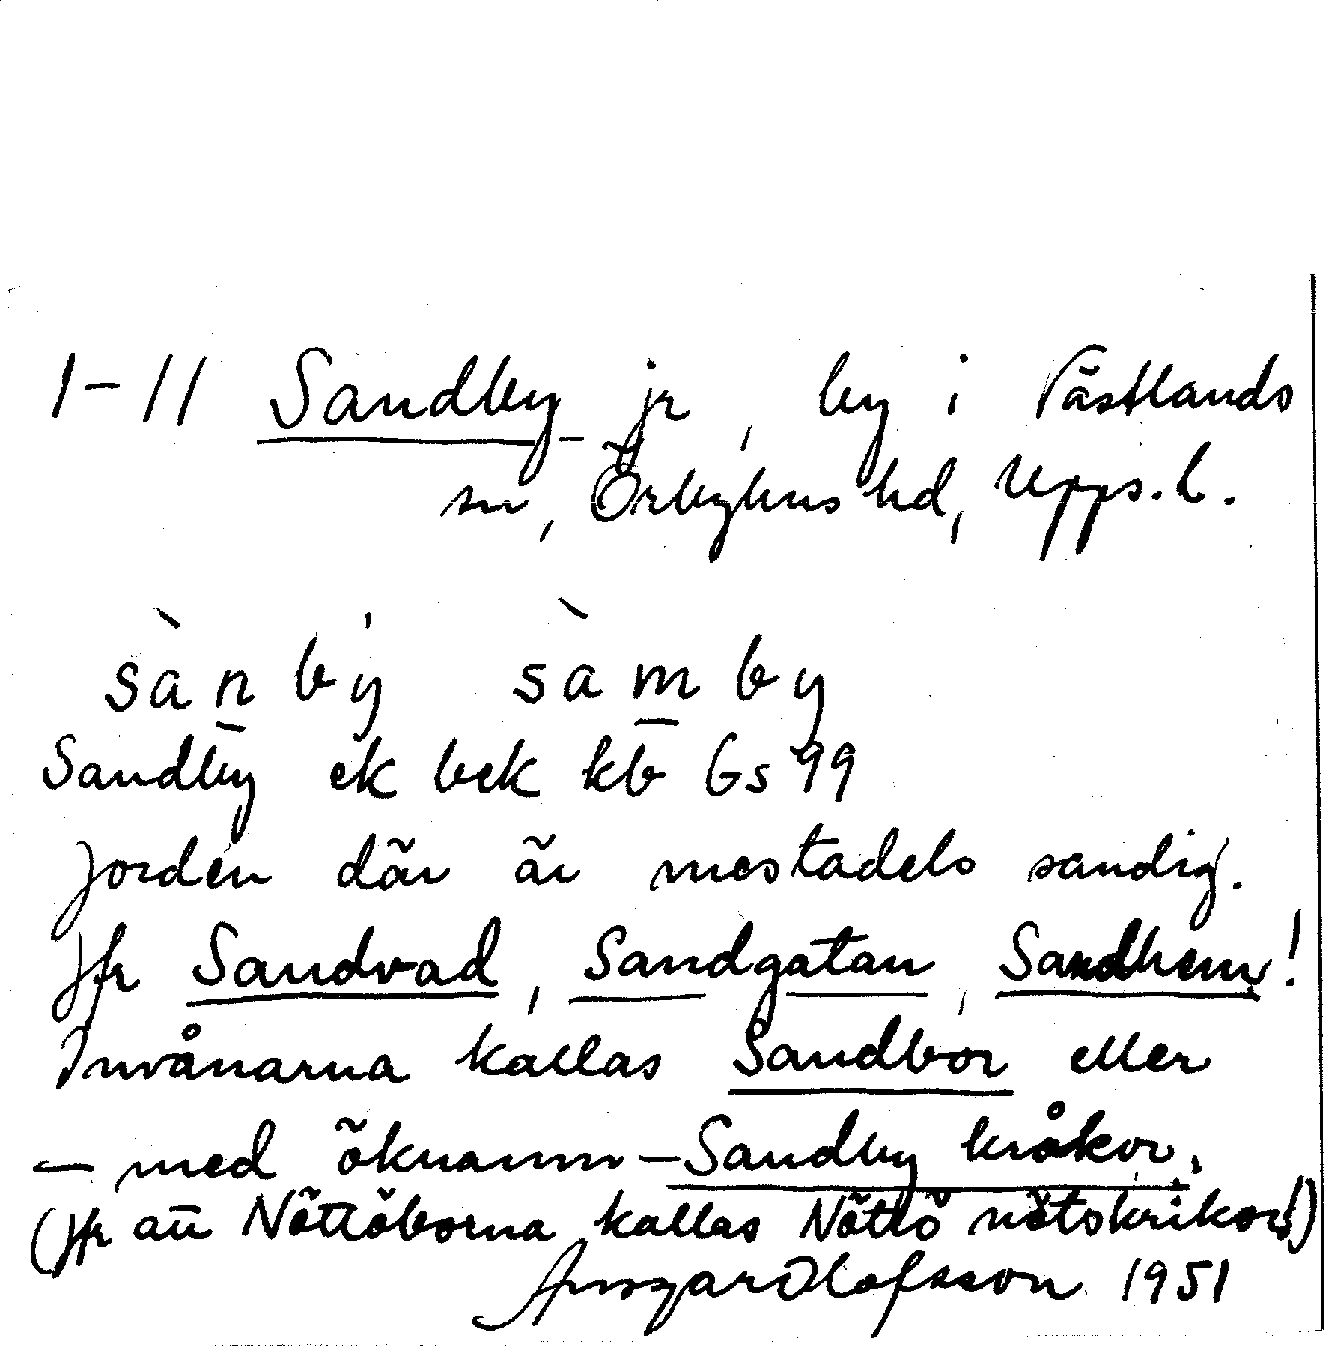 1-11 Sandby jr, by i Västlands
sn, Örbyhus hd, Upps. l.
sànbý sàmby
Sandby ek bek kb Gs 99
Jorden där är mestadels sandig.
Jfr Sandvad, Sandgatan, Sandhem!
Invånarna kallas Sandbor eller
— med öknamn — Sandby kråkor.
(Jfr att Nöttöborna kallas Nöttö nötskrikor!)
Ansgar Olofsson 1951